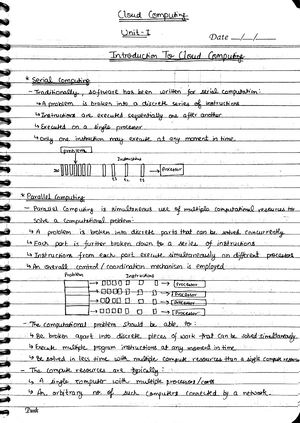 Cloud Computing
Unit-I
Date __/__/__
Introduction To Cloud Computing
* Serial Computing
- Traditionally, software has been written for serial computation:
↳ A problem is broken into a discrete series of instructions
↳ Instructions are executed sequentially one after another
↳ Executed on a single processor
↳ Only one instruction may execute at any moment in time.
problem
Instructions
Processor
* Parallel Computing
- Parallel Computing is simultaneous use of multiple computational resources to
solve a computational problem:
↳ A problem is broken into discrete parts that can be solved concurrently
↳ Each part is further broken down to a series of instructions
↳ Instructions from each part execute simultaneously on different processors
↳ An overall control / coordination mechanism is employed
Problem Instructions
Processor
Processor
Processor
Processor
- The computational problem should be able to:
↳ Be broken apart into discrete pieces of work that can be solved simultaneously.
↳ Execute multiple program instructions at any moment in time.
↳ Be solved in less time with multiple compute resources than a single compute resource
- The compute resources are typically:
↳ A single computer with multiple processors/cores
↳ An arbitrary no. of such computers connected by a network.